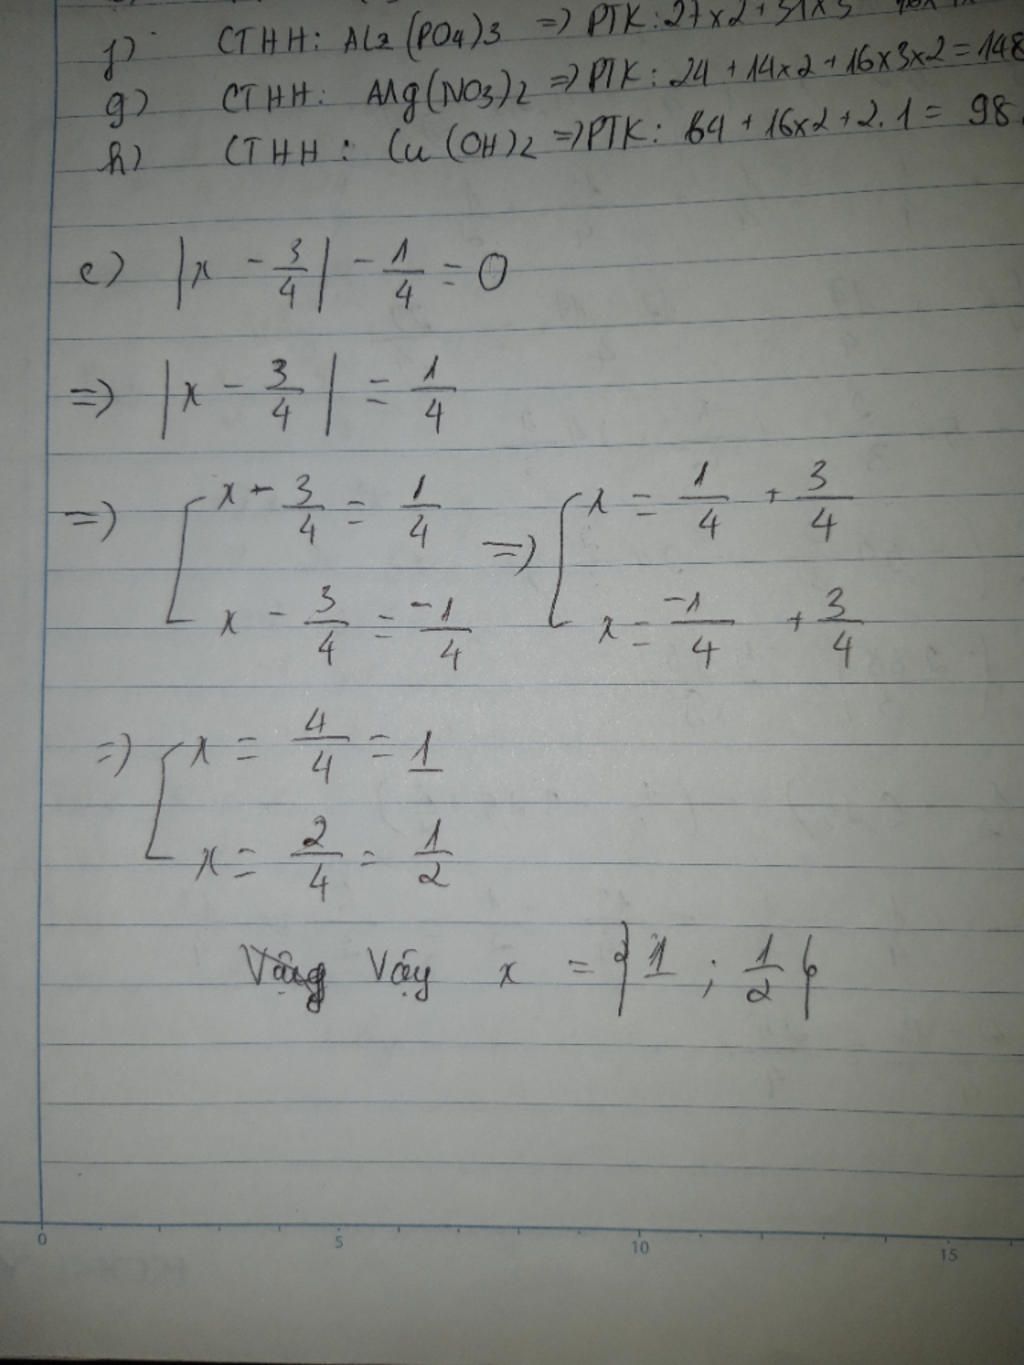 f) CTHH: Al2(PO4)3 => PTK: 27x2+31x3
g) CTHH: Mg(NO3)2 => PTK: 24+14x2+16x3x2=148
h) CTHH: Cu(OH)2 => PTK: 64+16x2+2.1= 98
e) |x - 3/4| - 1/4 = 0
=> |x - 3/4| = 1/4
=> [ x - 3/4 = 1/4 => [ x = 1/4 + 3/4
x - 3/4 = -1/4 x = -1/4 + 3/4
=> [ x = 4/4 = 1
x = 2/4 = 1/2
Vậy x = {1 ; 1/2}
0 5 10 15